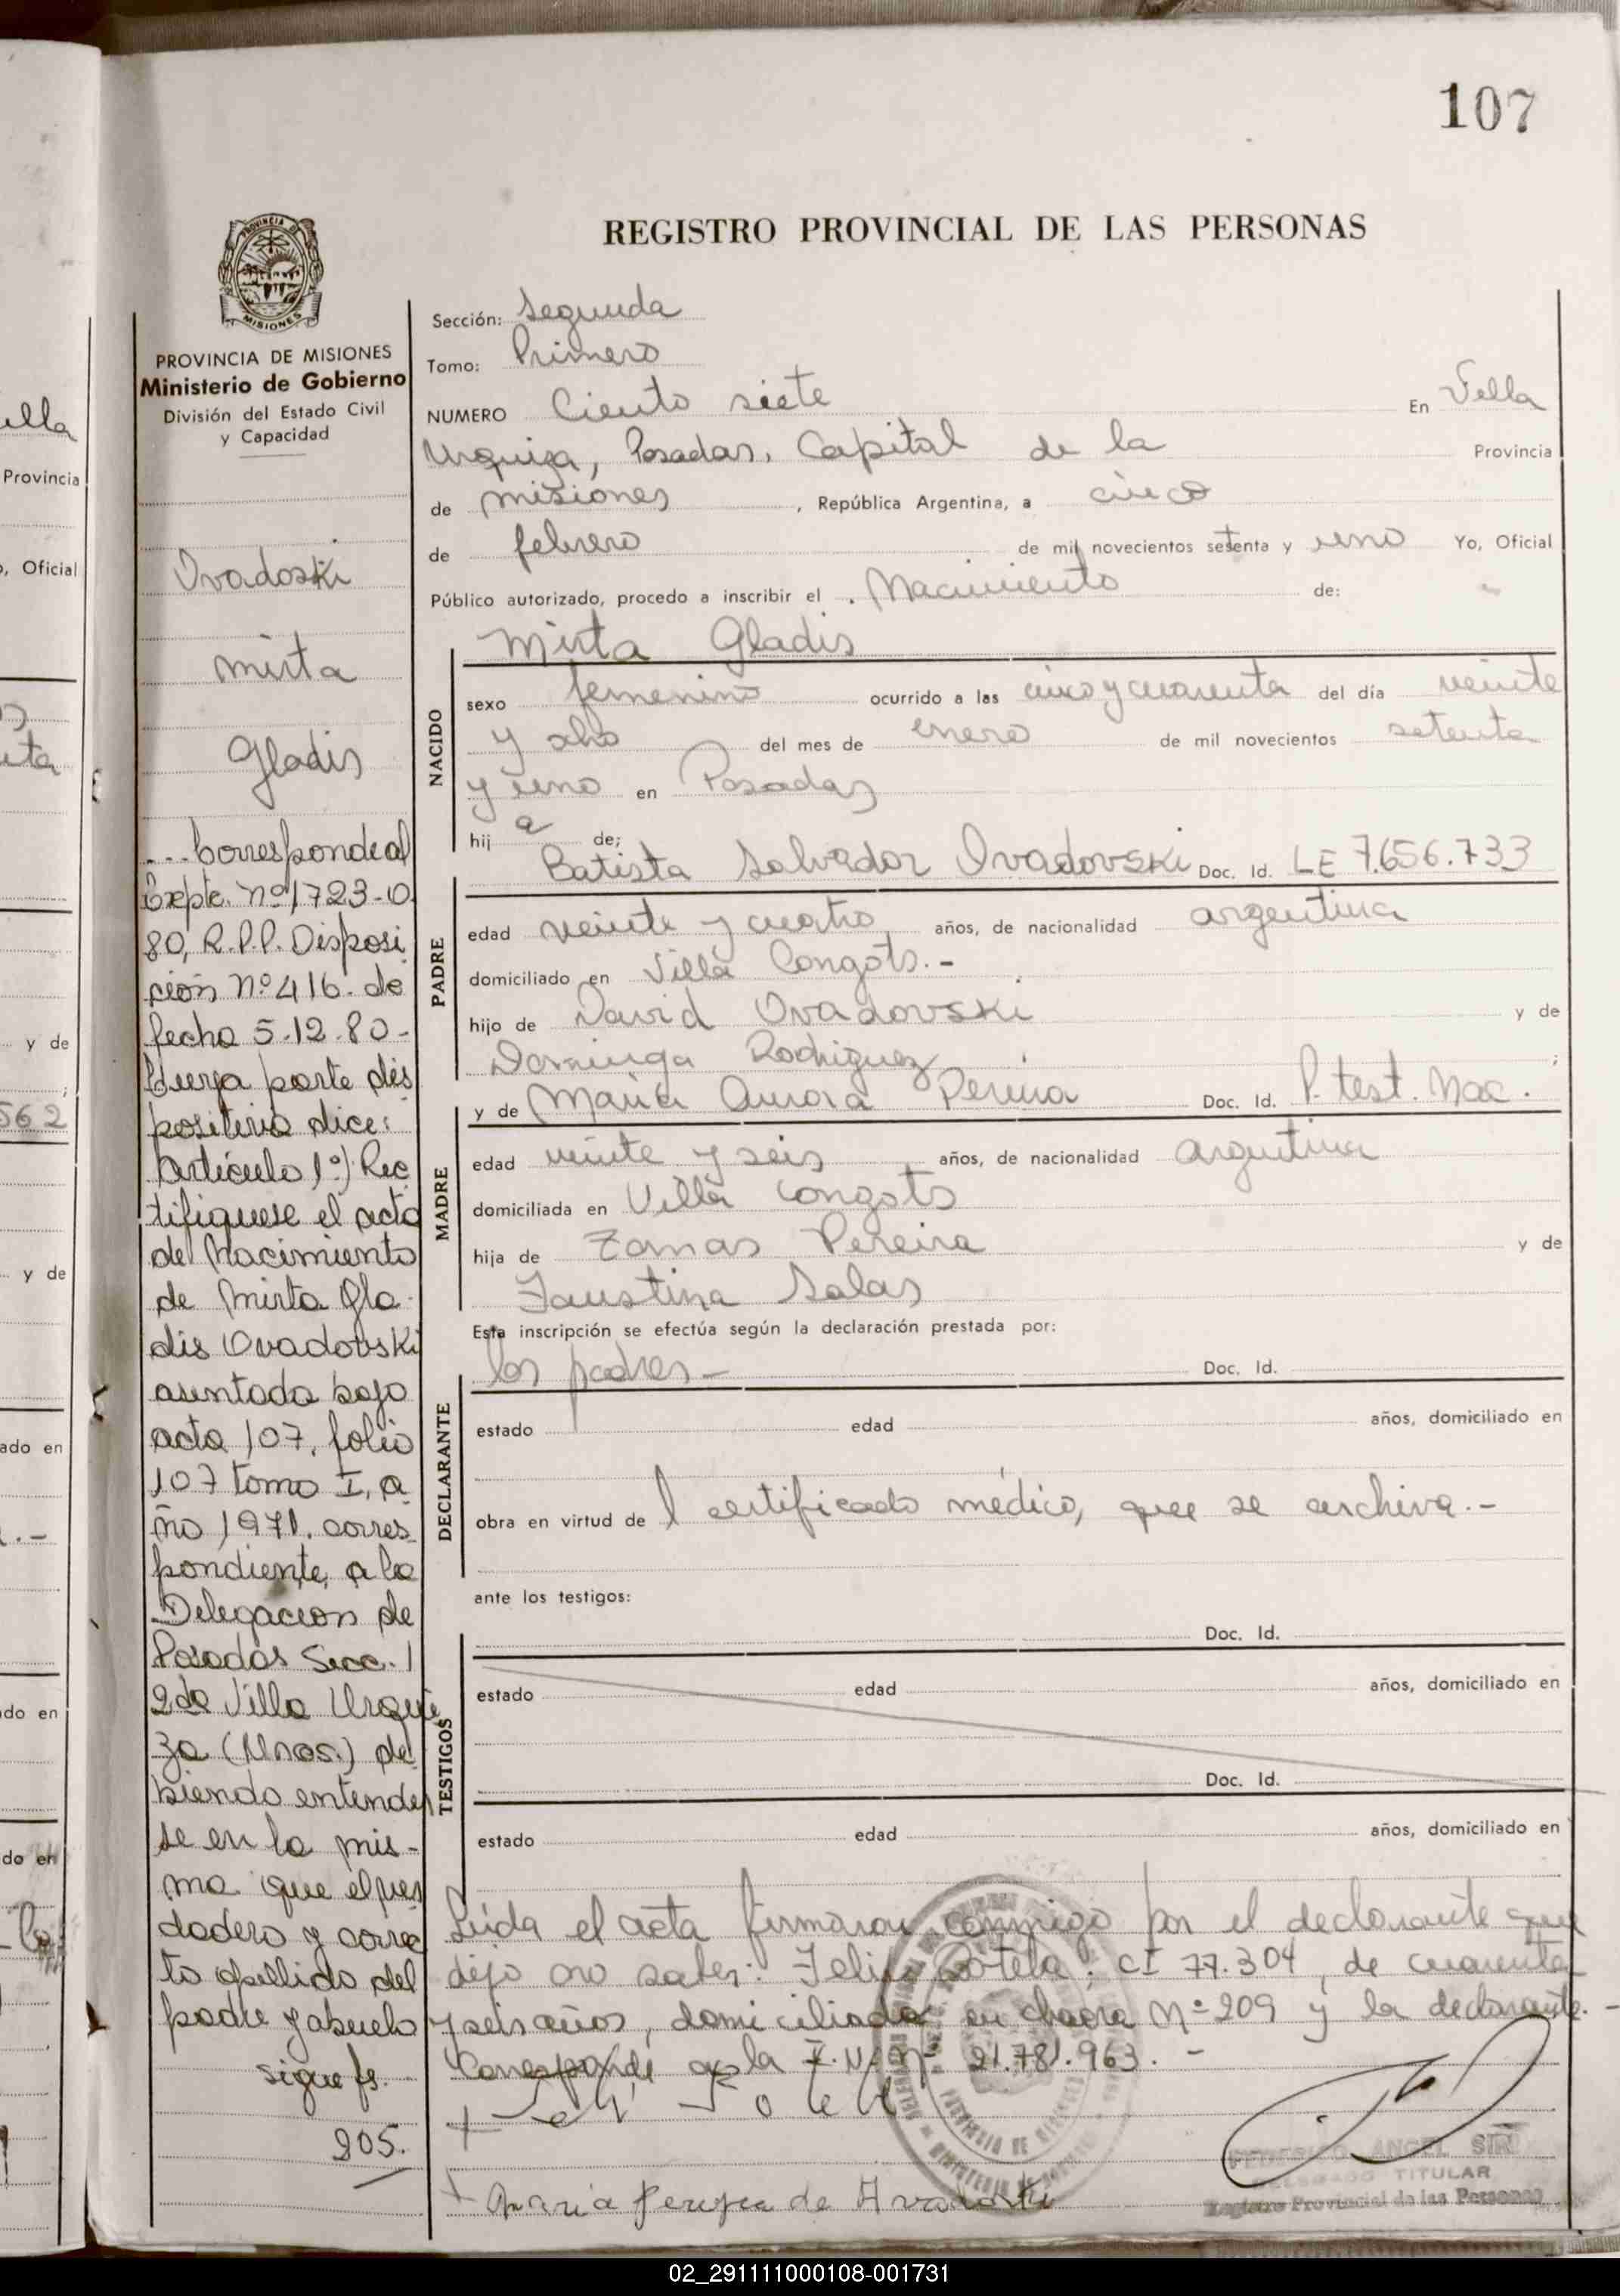 107
REGISTRO PROVINCIAL DE LAS PERSONAS
PROVINCIA DE MISIONES
Ministerio de Gobierno
División del Estado Civil
y Capacidad
Ovadoski
Mirta
Gladis
... Corresponde al
Expte. nº 1723-O
80, R.P.P. Disposi
ción nº 416. de
fecha 5-12-80-
cuya parte dis
positiva dice:
Artículo 1º) Rec
tifiquese el acta
de Nacimiento
de Mirta Gla-
dis Ovadovski
asentada bajo
acta 107, folio
107 tomo I, a
ño 1971. corres
pondiente a la
Delegacion de
Posadas Secc.
2da Villa Urqui
za (Mnes.) de
biendo entender
se en la mis-
ma que el ver
dadero y correc
to apellido del
padre y abuelo
sigue fs.
205.
Sección: Segunda
Tomo: Primero
NUMERO Ciento siete En Villa
Urquiza, Posadas, Capital de la Provincia
de Misiones, República Argentina, a cinco
de febrero de mil novecientos setenta y uno Yo, Oficial
Público autorizado, procedo a inscribir el Nacimiento de:
Mirta Gladis
NACIDO
sexo femenino ocurrido a las cinco y cuarenta del día veinte
y ocho del mes de enero de mil novecientos setenta
y uno en Posadas
hija de;
Batista Salvador Ovadovski Doc. Id. LE 7.656.733
PADRE
edad veinte y cuatro años, de nacionalidad argentina
domiciliado en Villa Longots.-
hijo de David Ovadovski y de
Dominga Rodriguez ;
y de Maria Aurora Pereira Doc. Id. P. test. Nac.
MADRE
edad veinte y seis años, de nacionalidad argentina
domiciliada en Villa Longots
hija de Tomas Pereira y de
Faustina Salas
Esta inscripción se efectúa según la declaración prestada por:
los padres- Doc. Id.
DECLARANTE
estado edad años, domiciliado en
obra en virtud de l certificado médico, que se archiva.-
ante los testigos:
Doc. Id.
TESTIGOS
estado edad años, domiciliado en
Doc. Id.
estado edad años, domiciliado en
Leída el acta firmaron conmigo por el declarante que
dijo no saber: Sotelo; CI 77.304, de cuarenta
y seis años, domiciliado en chacra Nº 209 y la declarante.-
Corresponde a la 21.781.963.-
Maria de
FEDERICO ANGEL
TITULAR
Registro Provincial de las Personas
02_291111000108-001731